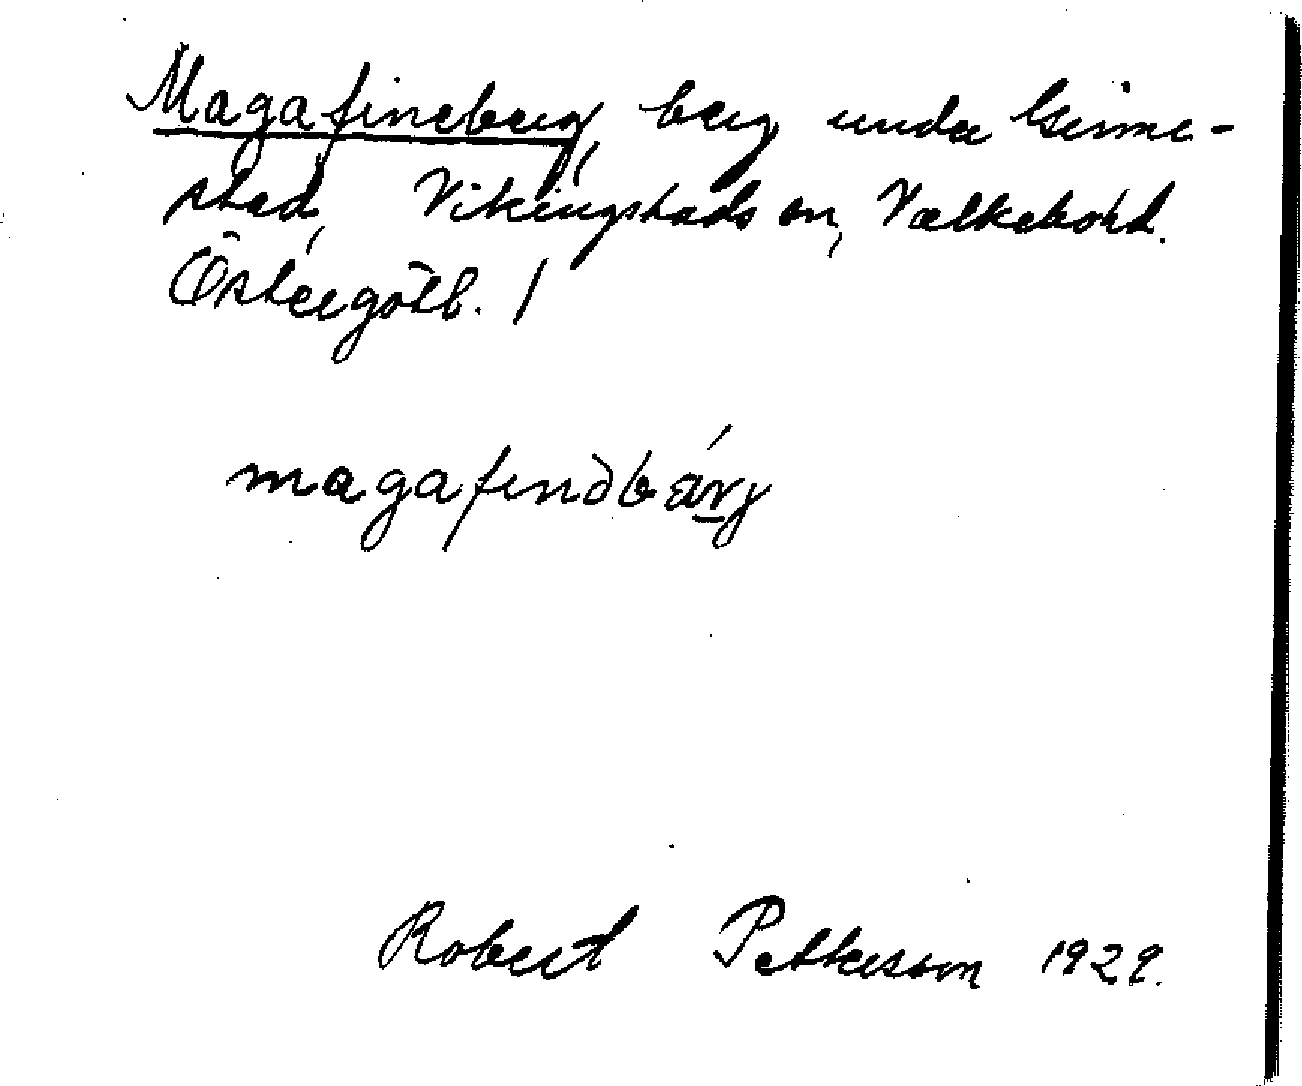 Magafineberg, berg under Gismestad, Vikingstads sn, Valkebohd.
Östergötl. /
magafinəbärj
Robert Pettersson 1929.